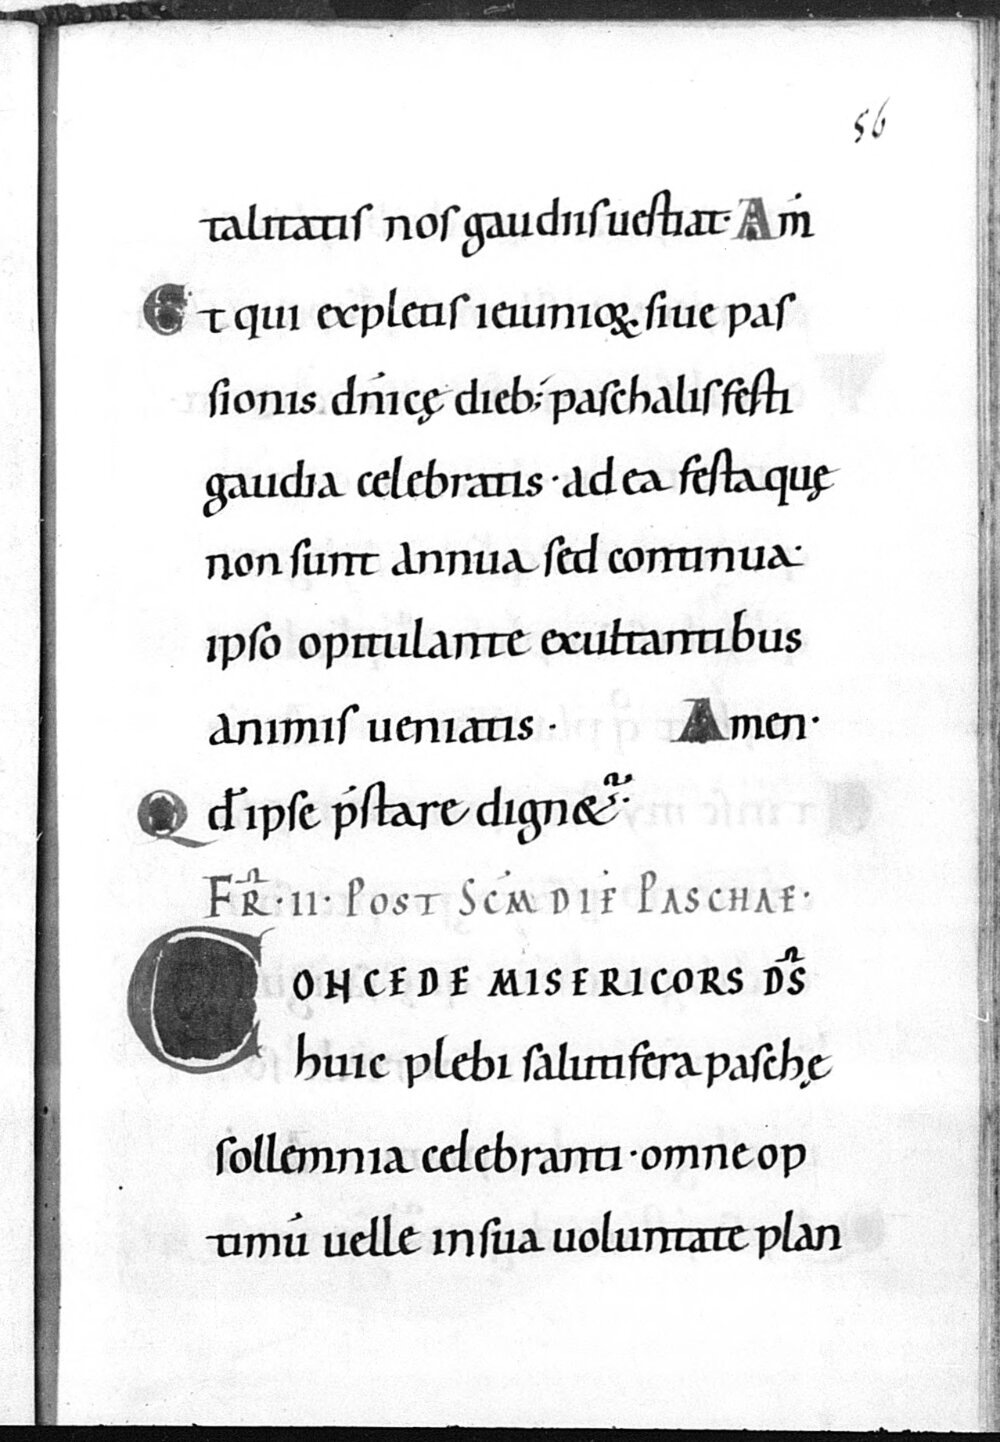 56
talitatis nos gaudiis uestiat· Am̅
Et qui expletis ieiunioꝝ siue pas
sionis dn̅icę dieb; paschalis festi
gaudia celebratis · ad ea festa quę
non sunt annua sed continua·
ipso opitulante exultantibus
animis ueniatis · Amen·
Qđ ipse p̅stare dign&ur̃·
FR̅·II· POST SCM̅ DIE̅ PASCHAE·
CONCEDE MISERICORS DS̅
huic plebi salutifera paschę
sollemnia celebranti · omne op
timu̅ uelle in sua uoluntate plan